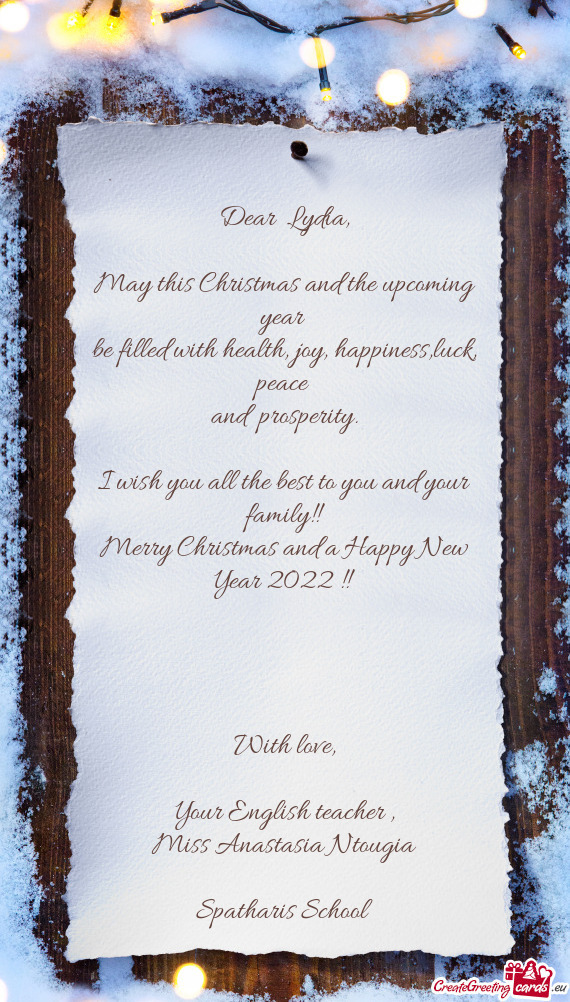 Dear Lydia,
May this Christmas and the upcoming
year
be filled with health, joy, happiness,luck,
peace
and prosperity.
I wish you all the best to you and your
family!!
Merry Christmas and a Happy New
Year 2022 !!
With love,
Your English teacher ,
Miss Anastasia Ntougia
Spatharis School
CreateGreetingcards.eu